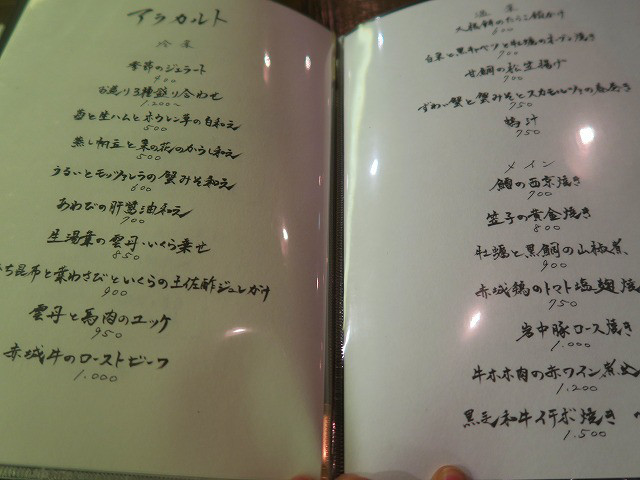 アラカルト
冷菜
季節のジェラート
900
お造り3種盛り合わせ
1.200〜
苺と生ハムとホウレン草の白和え
500
蒸し帆立と菜の花のからし和え
500
うるいとモッツァレラの蟹みそ和え
600
あわびの肝醤油和え
700
生湯葉の雲丹・いくら乗せ
850
昆布と葉わさびといくらの土佐酢ジュレがけ
900
雲丹と馬肉のユッケ
950
赤城牛のローストビーフ
1.000
温菜
大根餅のたらこ餡かけ
600
白菜と黒キャベツと牡蠣のオーブン焼き
700
甘鯛の松笠揚げ
700
ずわい蟹と蟹みそとスカモルツァの春巻き
750
鴨汁
750
メイン
鱈の西京焼き
700
笠子の黄金焼き
800
牡蠣と黒鯛の山椒煮
900
赤城鶏のトマト塩麹焼
750
岩中豚ロース焼き
1.000
牛ホホ肉の赤ワイン煮込
1.200
黒毛和牛イチボ焼き
1.500